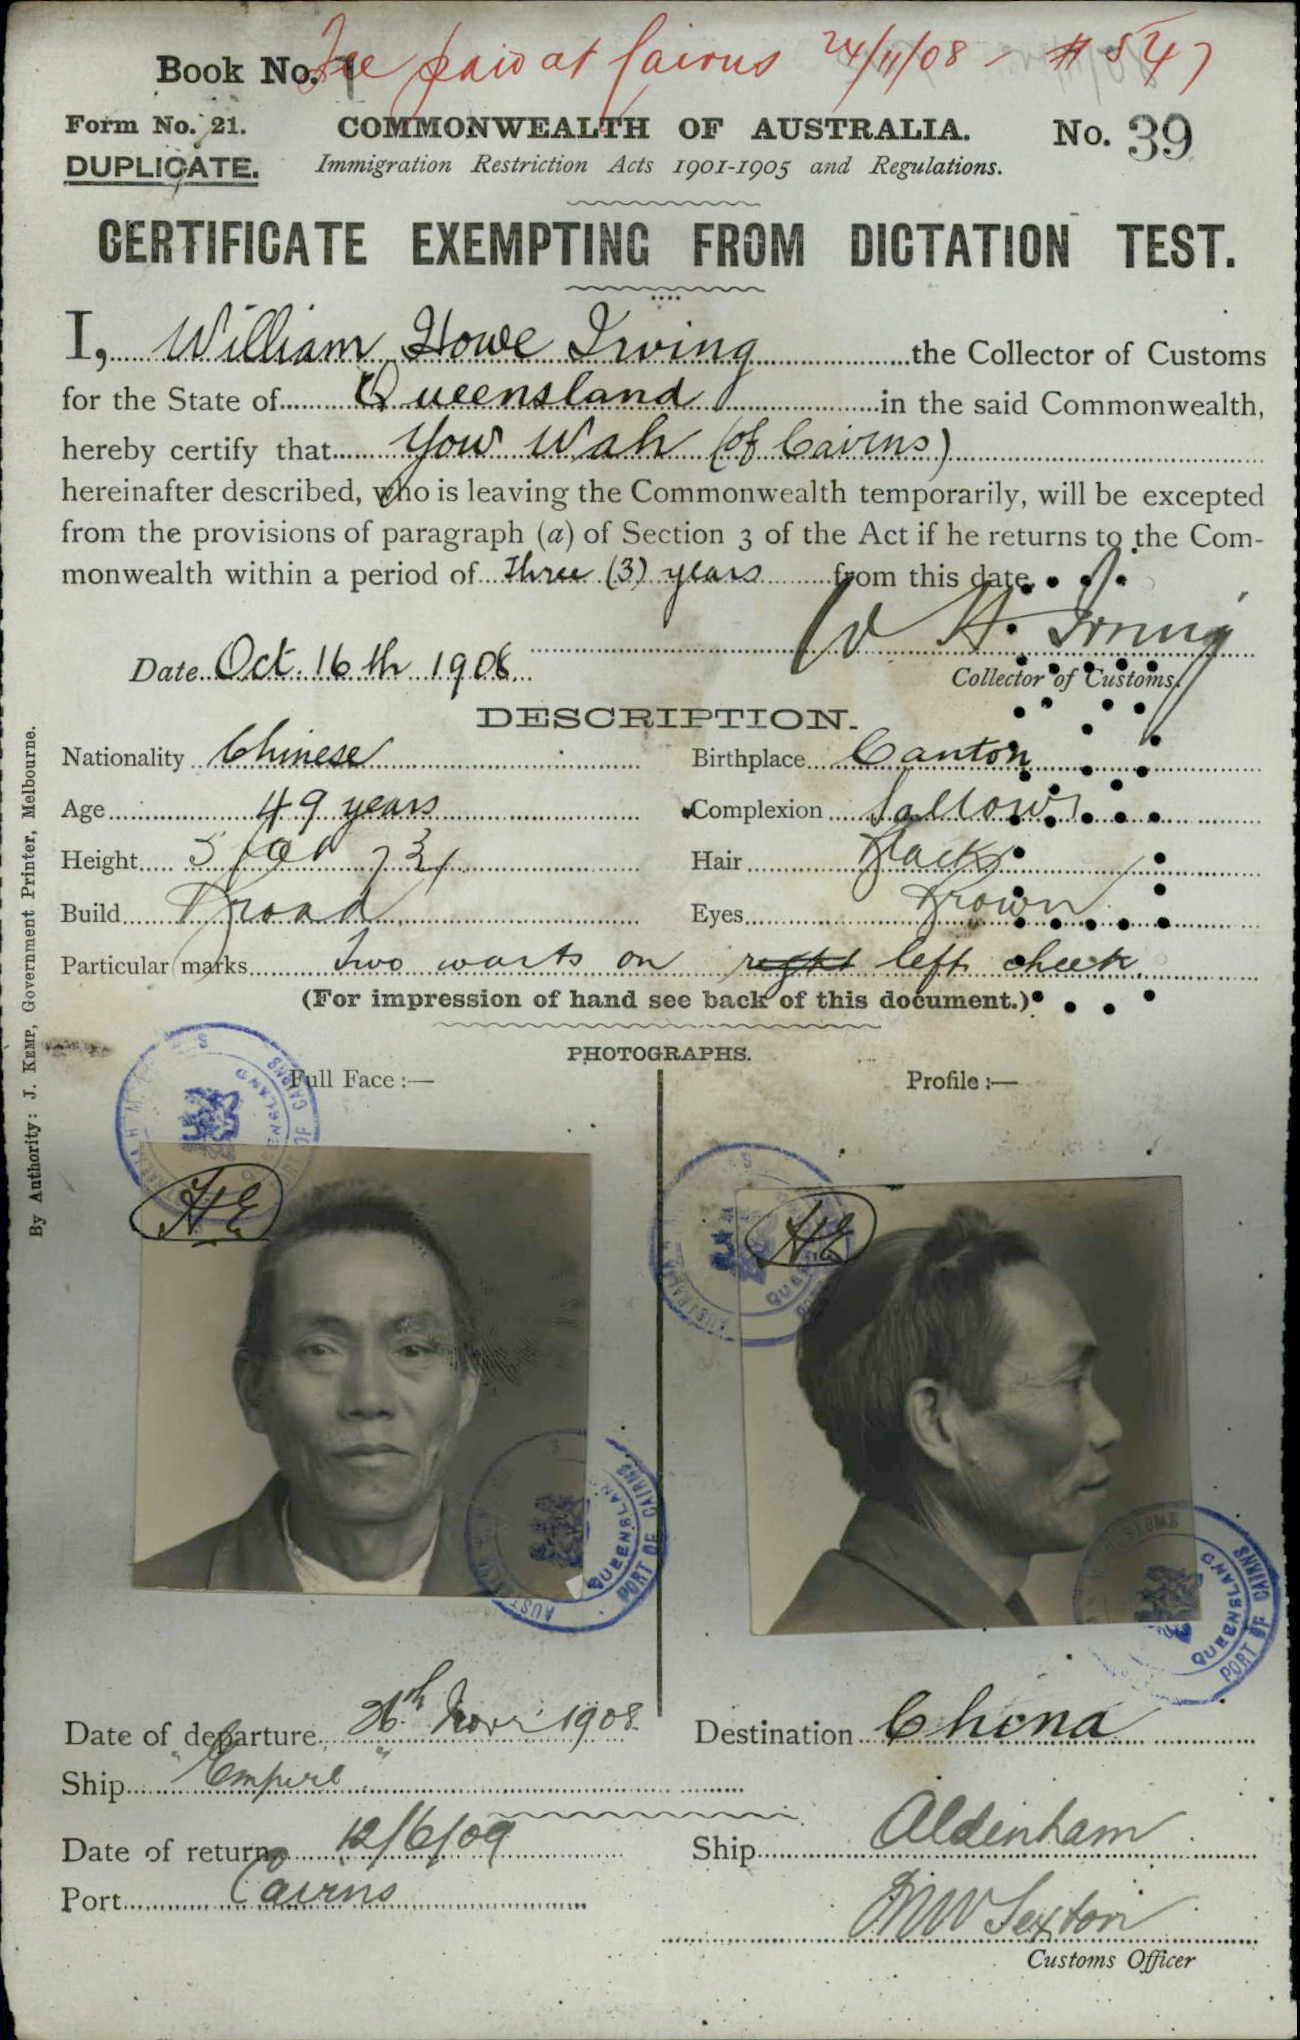 Book No. 1 Fee paid at Cairns 24/11/08 - # 547
Form No. 21. COMMONWEALTH OF AUSTRALIA. No. 39
DUPLICATE. Immigration Restriction Acts 1901-1905 and Regulations.
CERTIFICATE EXEMPTING FROM DICTATION TEST.
I, William Howe Irving the Collector of Customs
for the State of Queensland in the said Commonwealth,
hereby certify that You Wah (of Cairns)
hereinafter described, who is leaving the Commonwealth temporarily, will be excepted
from the provisions of paragraph (a) of Section 3 of the Act if he returns to the Com-
monwealth within a period of Three (3) years from this date.
W H Irving
Date Oct. 16th 1908
Collector of Customs.
DESCRIPTION.
Nationality Chinese Birthplace Canton
Age 49 years Complexion Sallow
Height 5 feet 7 3/4 Hair Black
Build Broad Eyes Brown
Particular marks Two warts on right left cheek.
(For impression of hand see back of this document.)
PHOTOGRAPHS.
Full Face :— Profile :—
HE
HE
QUEENSLAND
PORT OF CAIRNS
QUEENSLAND
PORT OF CAIRNS
Date of departure 26th Novr 1908. Destination China
Ship "Empire"
Date of return 12/6/09 Ship Aldenham
Port Cairns
Sexton
Customs Officer
By Authority: J. KEMP, Government Printer, Melbourne.